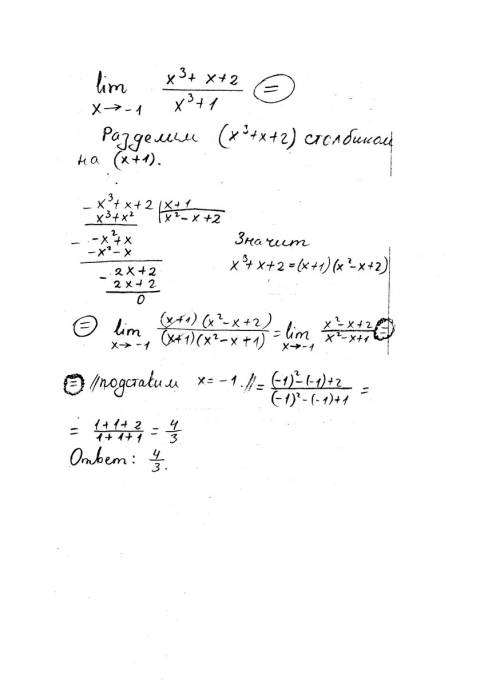 lim x→-1 (x³+x+2)/(x³+1) =
Разделим (x³+x+2) столбиком
на (x+1).
- x³+x+2 | x+1
x³+x² | x²-x+2
- -x²+x
-x²-x
Значит
- 2x+2
x³+x+2=(x+1)(x²-x+2)
2x+2
0
= lim x→-1 (x+1)(x²-x+2)/(x+1)(x²-x+1) = lim x→-1 (x²-x+2)/(x²-x+1) =
= //подставим x=-1.// = ((-1)²-(-1)+2)/((-1)²-(-1)+1) =
= (1+1+2)/(1+1+1) = 4/3
Ответ: 4/3.